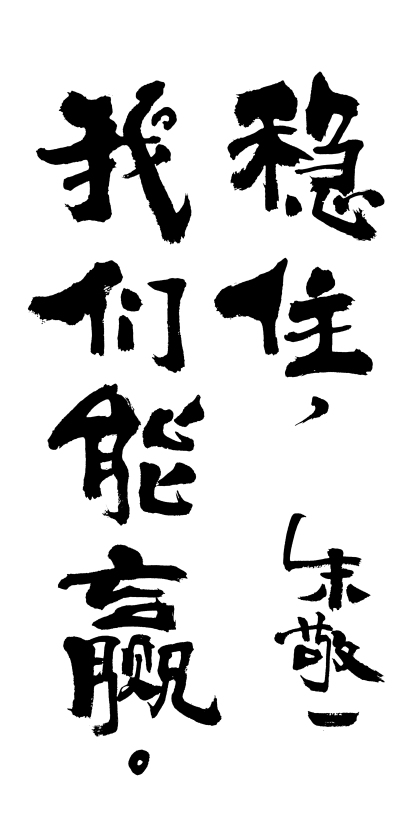 稳住，
我们能赢。
朱敬一